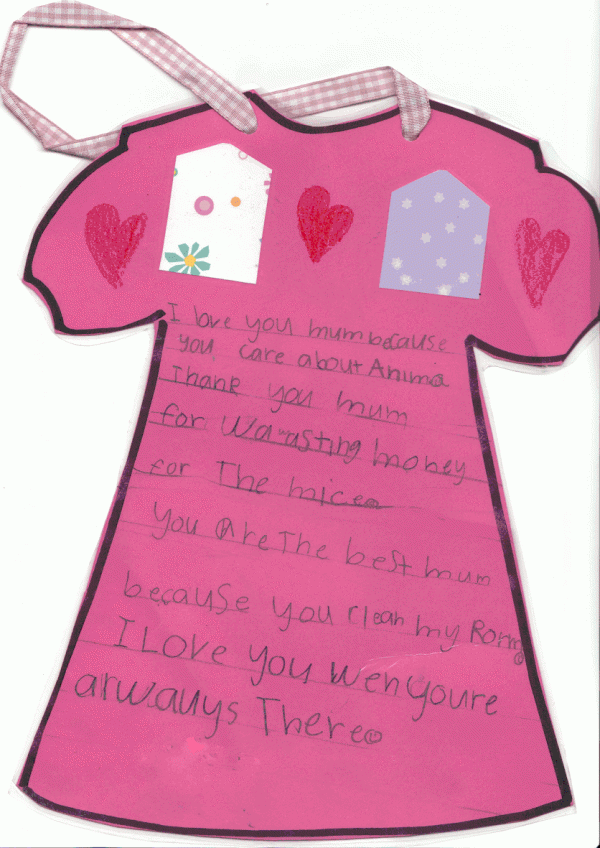 I love you mum because
you care about Anima
Thank you mum
for Wawasting money
for The mice
you Are The best mum
because you clean my Rorm
I Love you wen youre
arwauys There